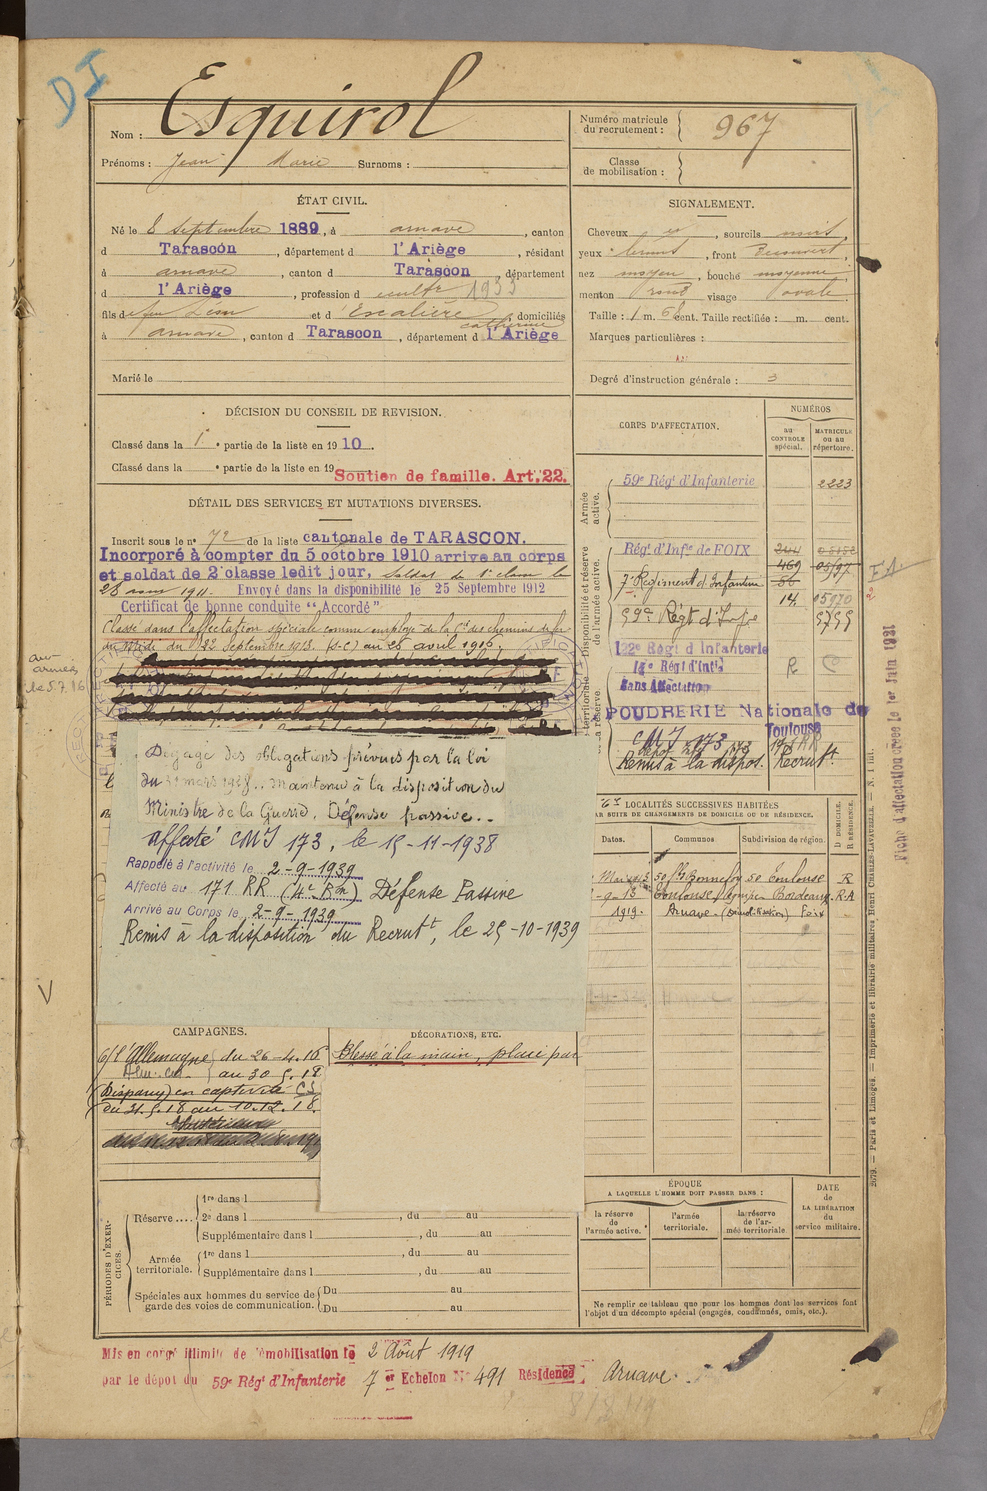 DI
Nom : Esquirol
Prénoms : Jean Marie Surnoms :
Numéro matricule du recrutement : 967
Classe de mobilisation :
ÉTAT CIVIL.
Né le 8 septembre 1889, à arnave, canton
d Tarascon, département d l'Ariège, résidant
à arnave, canton d Tarascon, département
d l'Ariège, profession d cultr 1933
fils de feu Léon et d' Escalière Catherine, domiciliés
à arnave, canton d Tarascon, département d l'Ariège
Marié le
SIGNALEMENT.
Cheveux et, sourcils noirs,
yeux bruns, front découvert,
nez moyen, bouche moyenne
menton rond visage ovale
Taille : 1 m. 6 cent. Taille rectifiée : m. cent.
Marques particulières :
Degré d'instruction générale : 3
DÉCISION DU CONSEIL DE REVISION.
Classé dans la 1e partie de la liste en 1910.
Classé dans la e partie de la liste en 19
Soutien de famille. Art. 22.
DÉTAIL DES SERVICES ET MUTATIONS DIVERSES.
Inscrit sous le n° 72 de la liste cantonale de TARASCON.
Incorporé à compter du 5 octobre 1910 arrivé au corps
et soldat de 2e classe ledit jour, Soldat de 1e classe le
1911. Envoyé dans la disponibilité le 25 Septembre 1912
Certificat de bonne conduite "Accordé"
Classé dans l'affectation spéciale comme employé de la Cie des chemins de fer
du Midi du 22 Septembre 1913. (S-C) au 25 avril 1916.
aux armées le 5.7.16
Dégagé des obligations prévues par la loi
du 31 mars 1928.. maintenu à la disposition du
Ministre de la Guerre. Défense passive..
affecté CMI 173, le 15-11-1938
Rappelé à l'activité le 2-9-1939
Affecté au 171 RR (4e Bon) Défense Passive
Arrivé au Corps le 2-9-1939
Remis à la disposition du Recrutt, le 25-10-1939
V
CORPS D'AFFECTATION.
NUMÉROS
au CONTROLE spécial.
MATRICULE ou au répertoire.
Armée active.
59e Régt d'Infanterie 2223
Disponibilité et réserve de l'armée active.
Régt d'Infie de FOIX
7e Régiment d'Infanterie 469
14. 05970
59e Régt d'Infie 5755
122e Régt d'Infanterie
14e Régt d'Infie
Sans Affectation
R C
POUDRERIE Nationale de Toulouse
CMI 173
Remis à la dispos. Recrutt.
Fiche d'affectation créée le 1er Juin 1931
LOCALITÉS SUCCESSIVES HABITÉES
PAR SUITE DE CHANGEMENTS DE DOMICILE OU DE RÉSIDENCE.
Dates. Communes Subdivision de région. D DOMICILE. R RÉSIDENCE.
50 Bonnefoy 50 Toulouse R
Toulouse Bordeaux R.A
1919. Arnave. Foix
CAMPAGNES.
c/ l'Allemagne du 26-4-16
au 30.5.18
(Disparu) en captivité CS
du 31.5.18 au 10.12.18.
DÉCORATIONS, ETC.
Blessé à la main, plaie par
PÉRIODES D'EXERCICES.
Réserve.... 1re dans l
2e dans l , du au
Supplémentaire dans l , du au
Armée territoriale. 1re dans l , du au
Supplémentaire dans l , du au
Spéciales aux hommes du service de garde des voies de communication. Du au
Du au
ÉPOQUE
A LAQUELLE L'HOMME DOIT PASSER DANS :
la réserve de l'armée active.
l'armée territoriale.
la réserve de l'armée territoriale
DATE de LA LIBÉRATION du service militaire.
Ne remplir ce tableau que pour les hommes dont les services font
l'objet d'un décompte spécial (engagés, condamnés, omis, etc.).
2679. — Paris et Limoges. — Imprimerie et librairie militaires Henri CHARLES-LAVAUZELLE. — N. 1 int.
Mis en congé illimité de démobilisation le 2 Août 1919
par le dépôt du 59e Régt d'Infanterie 7er Echelon N° 491 Résidence Arnave.